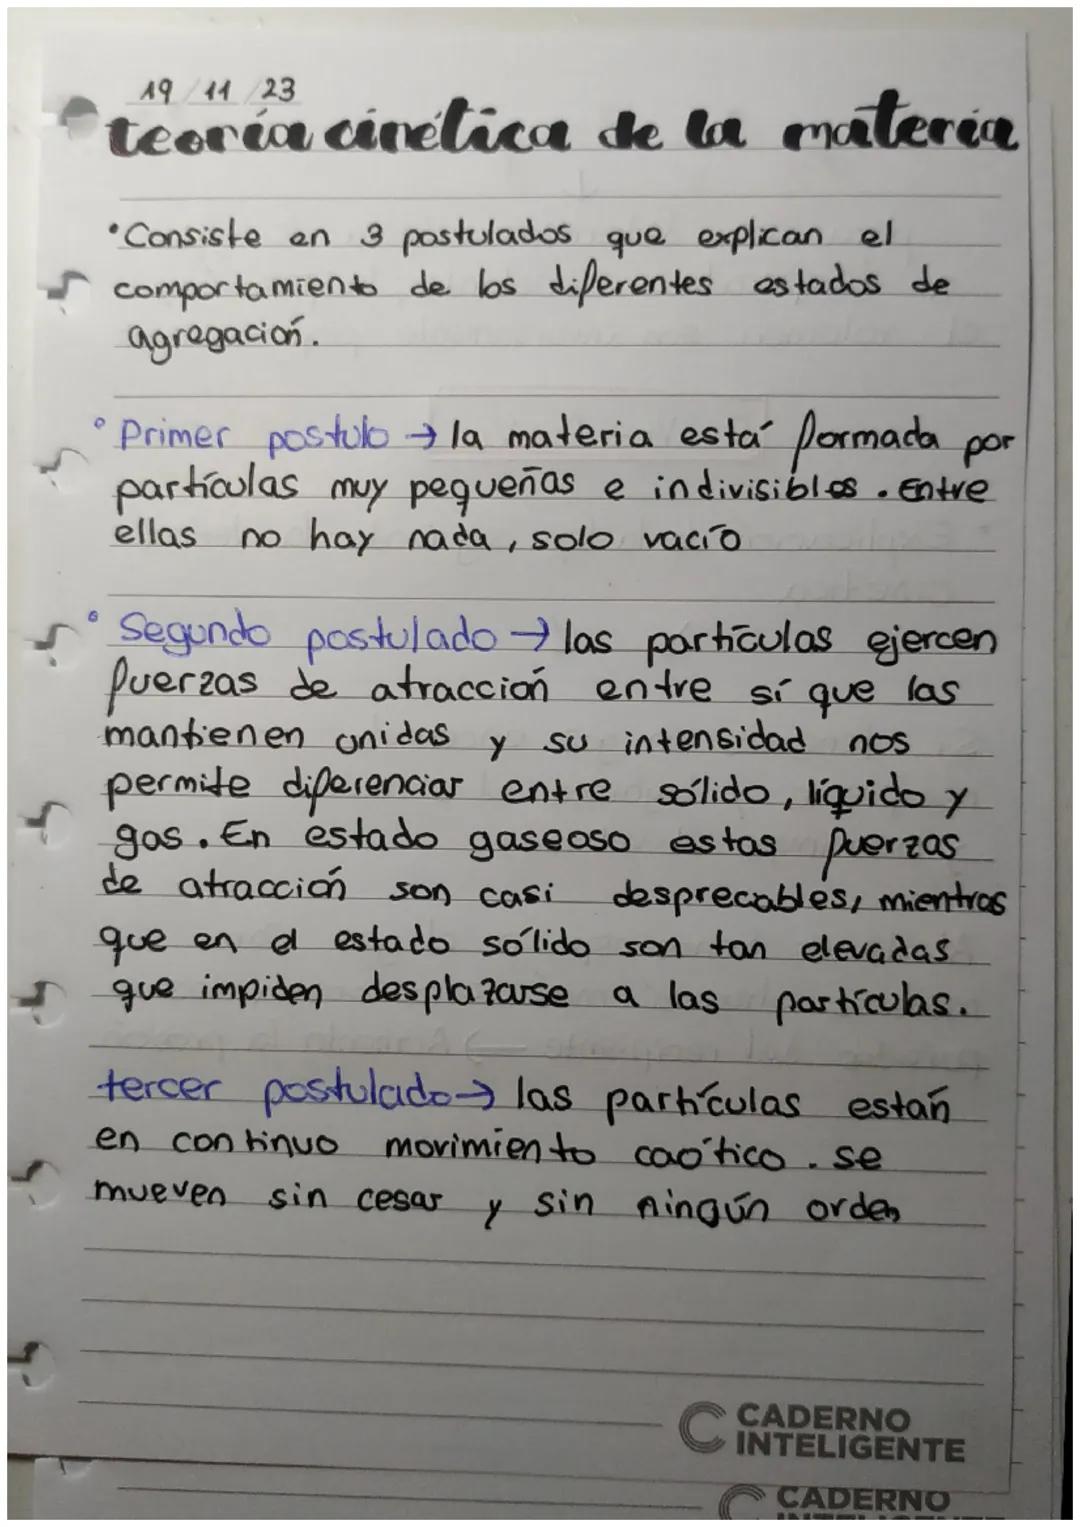 19/11/23
teoría cinética de la materia
• Consiste en 3 postulados que explican el
comportamiento de los diferentes estados de
agregación.
• Primer postulo → la materia está formada por
partículas muy pequeñas e indivisibles. Entre
ellas no hay nada, solo vacío
• Segundo postulado → las partículas ejercen
fuerzas de atracción entre sí que las
mantienen unidas y su intensidad nos
permite diferenciar entre sólido, líquido y
gas. En estado gaseoso estas fuerzas
de atracción son casi desprecables, mientras
que en el estado sólido son tan elevadas
que impiden desplazarse a las partículas.
tercer postulado → las partículas están
en continuo movimiento caótico. se
mueven sin cesar y sin ningún orden
CADERNO
INTELIGENTE
CADERNO